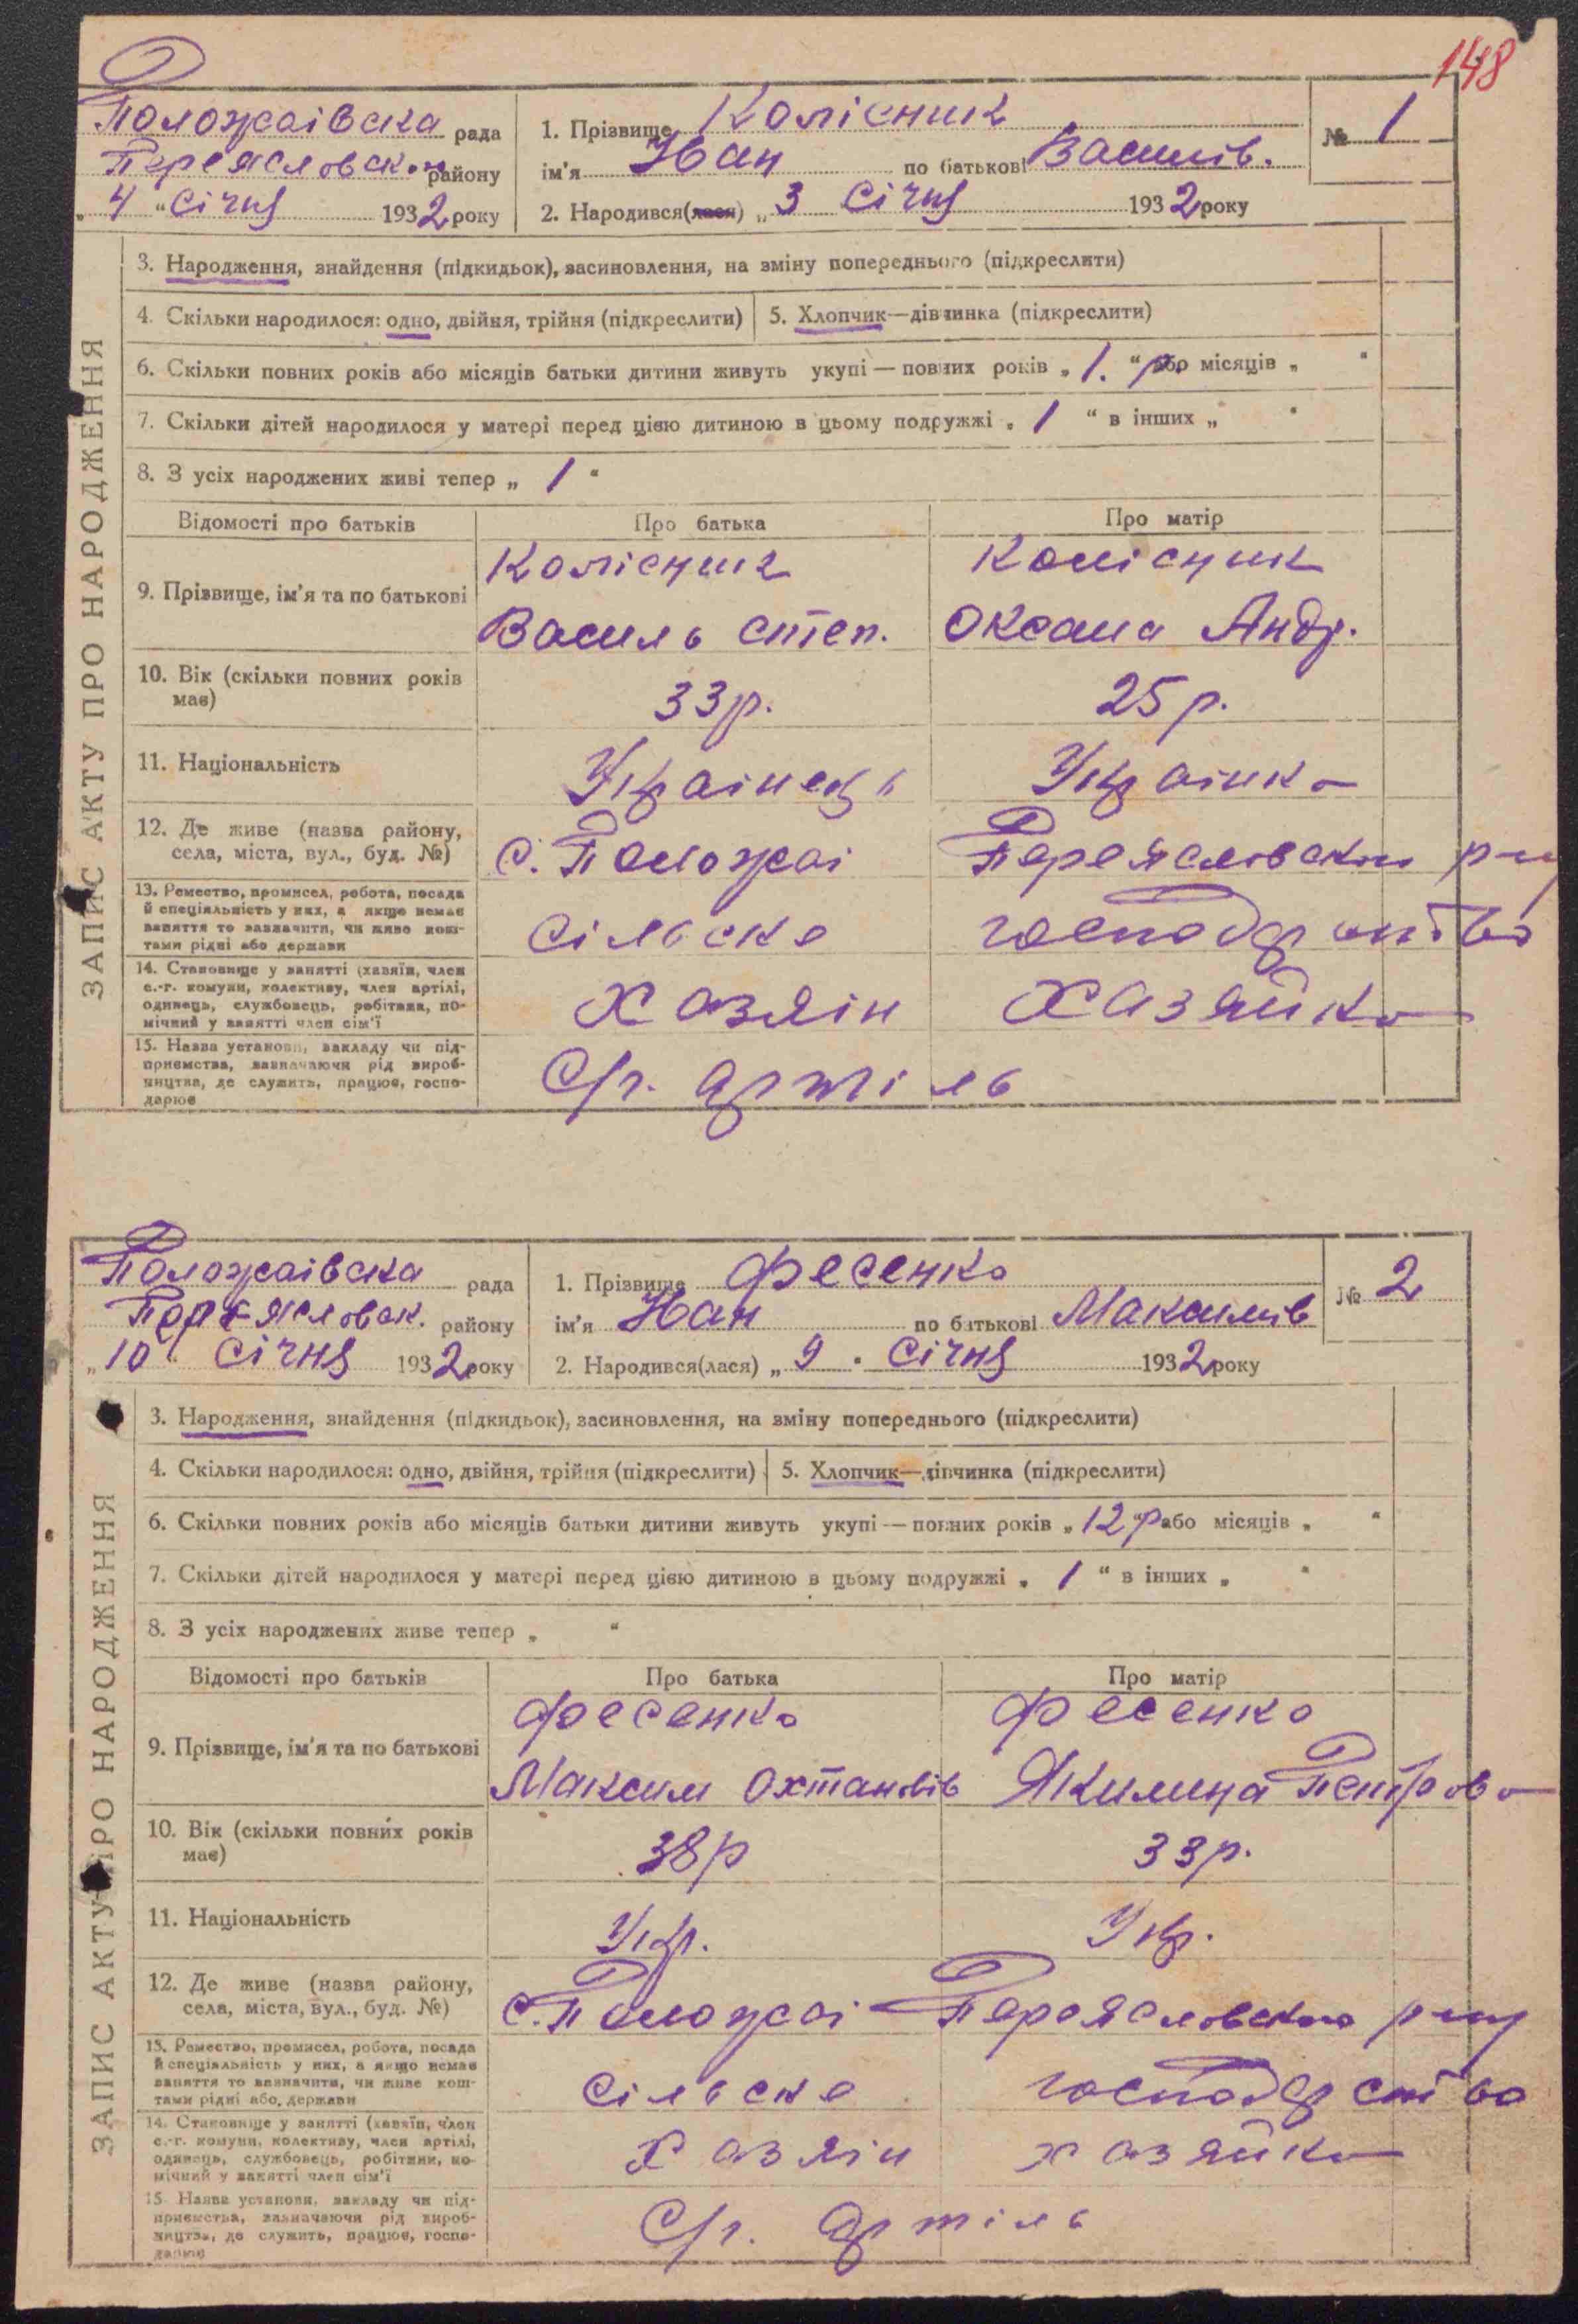 148
Положаівска рада
Переясловск. району
„4" Січня 1932 року
1. Прізвище Колісник
ім'я Іван по батькові Василів.
2. Народився(лася) „3 Січня 1932 року
№ 1
ЗАПИС АКТУ ПРО НАРОДЖЕННЯ
3. Народження, знайдення (підкидьок), засиновлення, на зміну попереднього (підкреслити)
4. Скільки народилося: одно, двійня, трійня (підкреслити) 5. Хлопчик—дівчинка (підкреслити)
6. Скільки повних років або місяців батьки дитини живуть укупі — повних років „1." р. або місяців „ "
7. Скільки дітей народилося у матері перед цією дитиною в цьому подружжі „1" в інших „ "
8. З усіх народжених живі тепер „1"
Відомості про батьків Про батька Про матір
9. Прізвище, ім'я та по батькові
Колісник Колісник
Василь Степ. Оксана Андр.
10. Вік (скільки повних років має) 33р. 25р.
11. Національність Украінець Украінка
12. Де живе (назва району, села, міста, вул., буд. №) с. Положаі Переясловского р-ну
13. Ремество, промисел, робота, посада й спеціяльність у них, а якщо немає заняття то зазначити, чи живе коштами рідні або держави
Сільске господарство
14. Становище у занятті (хазяїн, член с.-г. комуни, колективу, член артілі, одинець, службовець, робітник, помічний у занятті член сім'ї
Хазяін Хазяйка
15. Назва установи, закладу чи підприємства, зазначаючи рід виробництва, де служить, працює, господарює
С/г. артіль
Положаівска рада
Переясловск. району
„10" Січня 1932 року
1. Прізвище Фесенко
ім'я Іван по батькові Максимів
2. Народився(лася) „9" Січня 1932 року
№ 2
ЗАПИС АКТУ ПРО НАРОДЖЕННЯ
3. Народження, знайдення (підкидьок), засиновлення, на зміну попереднього (підкреслити)
4. Скільки народилося: одно, двійня, трійня (підкреслити) 5. Хлопчик—дівчинка (підкреслити)
6. Скільки повних років або місяців батьки дитини живуть укупі — повних років „12" р або місяців „ "
7. Скільки дітей народилося у матері перед цією дитиною в цьому подружжі „1" в інших „ "
8. З усіх народжених живе тепер „ "
Відомості про батьків Про батька Про матір
9. Прізвище, ім'я та по батькові
Фесенко Фесенко
Максим Якилина Петрова
10. Вік (скільки повних років має) 38р 33р.
11. Національність Укр. Укр.
12. Де живе (назва району, села, міста, вул., буд. №) с. Положаі Переясловского р-ну
13. Ремество, промисел, робота, посада й спеціяльність у них, а якщо немає заняття то зазначити, чи живе коштами рідні або держави
Сільске господарство
14. Становище у занятті (хазяїн, член с.-г. комуни, колективу, член артілі, одинець, службовець, робітник, помічний у занятті член сім'ї
Хазяін хазяйка
15. Назва установи, закладу чи підприємства, зазначаючи рід виробництва, де служить, працює, господарює
С/г. артіль